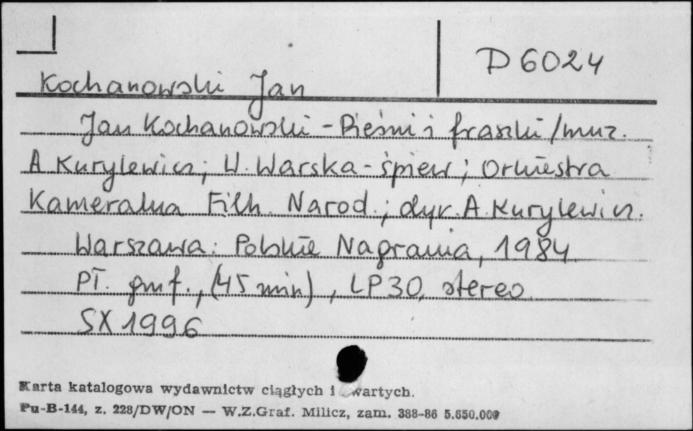 D 6024
Kochanowski Jan
Jan Kochanowski - Pieśni i fraszki / muz.
A. Kurylewicz; W. Warska - śpiew; Orkiestra
Kameralna Filh. Narod.; dyr. A. Kurylewicz.
Warszawa: Polskie Nagrania, 1984.
Pł. gmf., (45 min), LP30, stereo
SX 1996
Karta katalogowa wydawnictw ciągłych i wartych.
Pu-B-144, z. 228/DW/ON — W.Z.Graf. Milicz, zam. 388-86 5.650.000